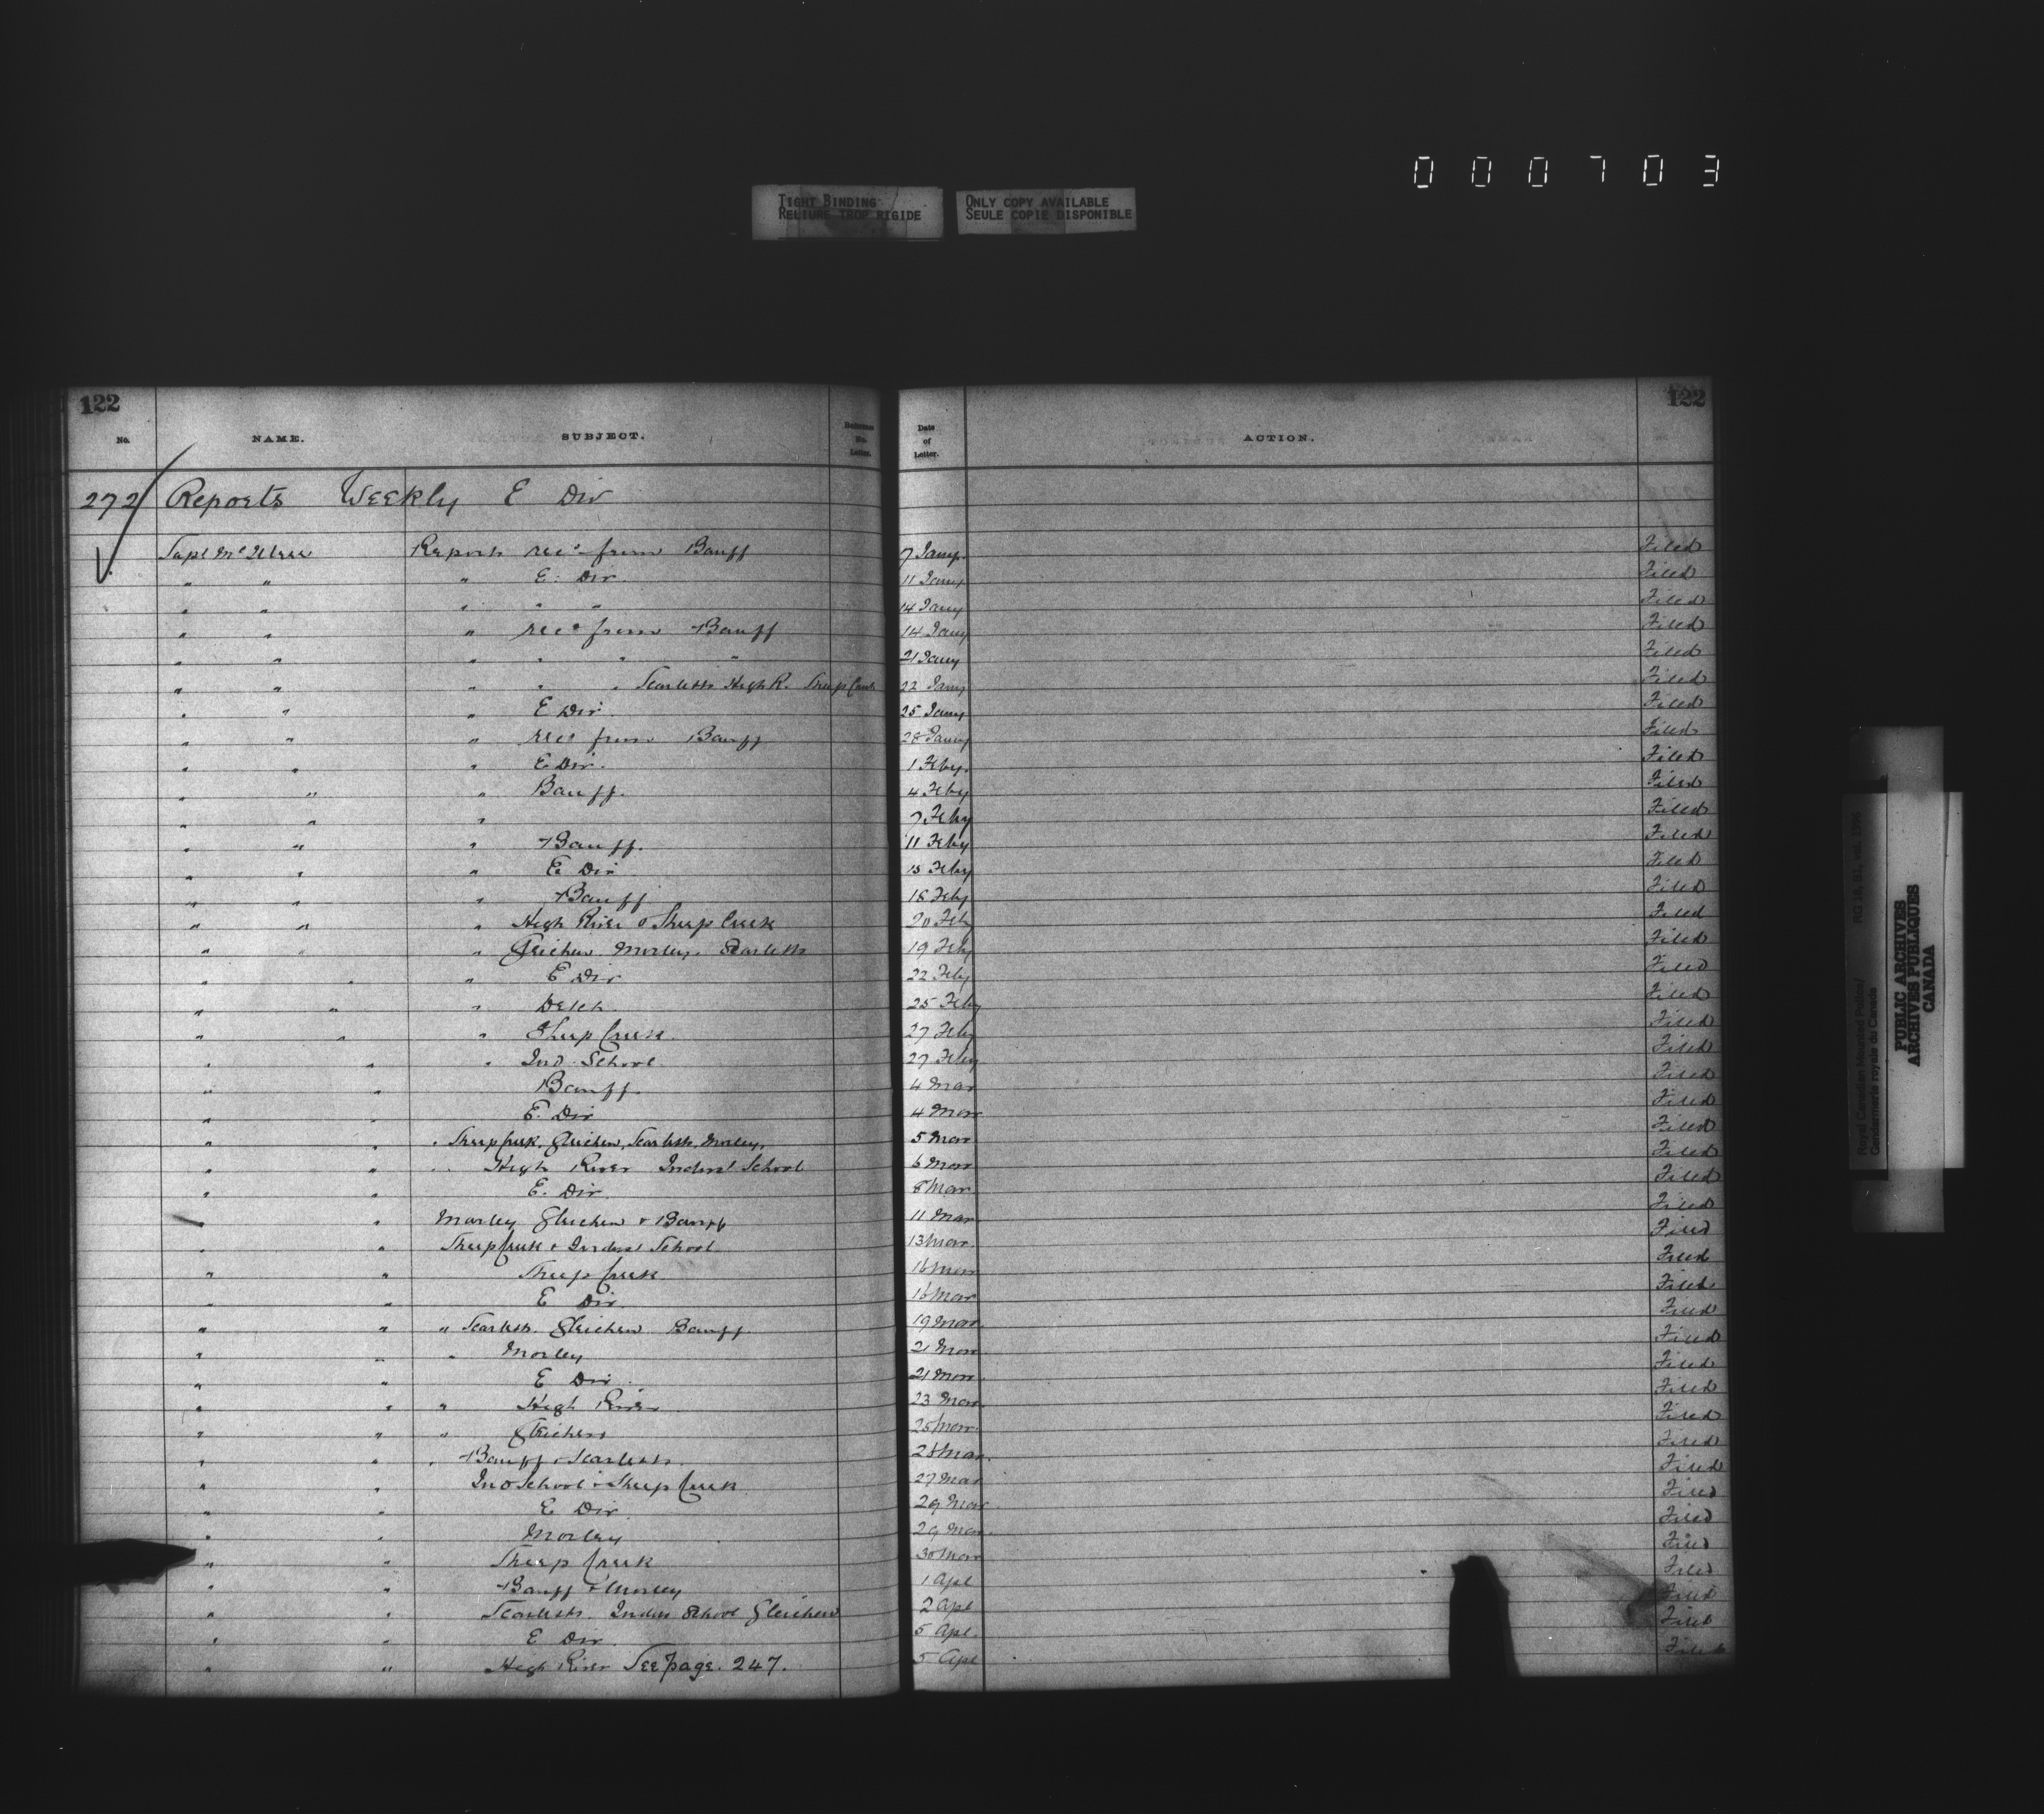 000703
TIGHT BINDING
RELIURE TROP RIGIDE
ONLY COPY AVAILABLE
SEULE COPIE DISPONIBLE
122 122
No. NAME. SUBJECT. Reference No. Letter. Date of Letter. ACTION.
272 Reports Weekly E Div
Supt McIllree Reports recd from Banff 7 Jany. Filed
" " " E. Div. 11 Jany Filed
" " " " " 14 Jany Filed
" " " recd from Banff 14 Jany Filed
" " " " " " 21 Jany Filed
" " " " " Scarletts High R. Sheep Creek 22 Jany Filed
" " " E Div 25 Jany Filed
" " " recd from Banff 28 Jany Filed
" " " E Div. 1 Feby. Filed
" " " Banff. 4 Feby Filed
" " " 7 Feby Filed
" " " Banff. 11 Feby Filed
" " " E Div 15 Feby Filed
" " " Banff 18 Feby Filed
" " " High River & Sheep Creek 20 Feby Filed
" " " Gleichen. Morley. Scarletts 19 Feby Filed
" " " E Div 22 Feby Filed
" " " 25 Feby Filed
" " " Sheep Creek. 27 Feby Filed
" " " Ind. School. 27 Feby Filed
" " Banff. 4 Mar Filed
" " E. Div 4 Mar Filed
" " " Sheep Creek, Gleichen, Scarletts, Morley, 5 Mar Filed
" " " High River Indust School 6 Mar Filed
" " E. Div. 8 Mar Filed
" " Morley Gleichen & Banff 11 Mar Filed
" " Sheep Creek & Indust School 13 Mar. Filed
" " Sheep Creek 16 Mar Filed
" " E Div. 16 Mar Filed
" " " Scarletts. Gleichen Banff. 19 Mar Filed
" " " Morley 21 Mar Filed
" " E Div. 21 Mar Filed
" " " High River 23 Mar Filed
" " " Gleichen 25 Mar. Filed
" " " Banff & Scarletts. Mar. Filed
" " Ind School & Sheep Creek 27 Mar Filed
" " E Div 29 Mar Filed
" " Morley 29 Mar. Filed
" " Sheep Creek 30 Mar Filed
" " Banff & Morley 1 Apl Filed
" " Scarletts. Indus School Gleichen 2 Apl Filed
" " E Div. 5 Apl. Filed
" " High River See page. 247. 5 Apl Filed
Royal Canadian Mounted Police/
Gendarmerie royale du Canada
PUBLIC ARCHIVES
ARCHIVES PUBLIQUES
CANADA